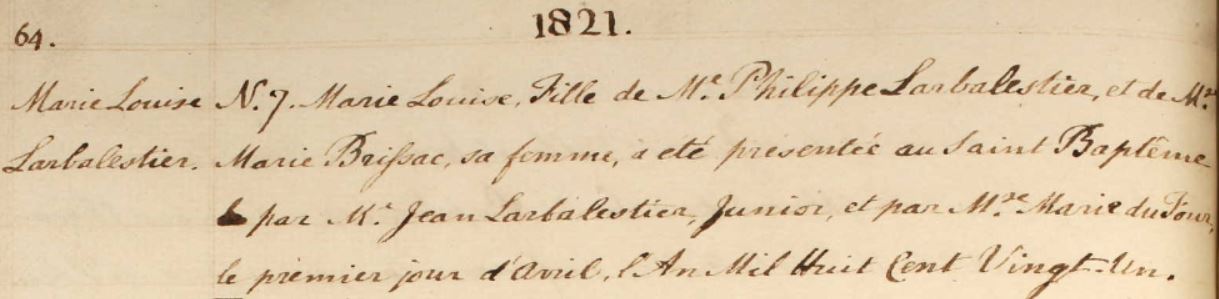 64.
1821.
Marie Louise N.7. Marie Louise, Fille de Mr. Philippe Larbalestier, et de Mde.
Larbalestier. Marie Brissac, sa femme, a eté presentée au Saint Baptême
par Mr. Jean Larbalestier, Junior, et par Mde. Marie du Four,
le premier jour d'avril, l'An Mil Huit Cent Vingt-Un.